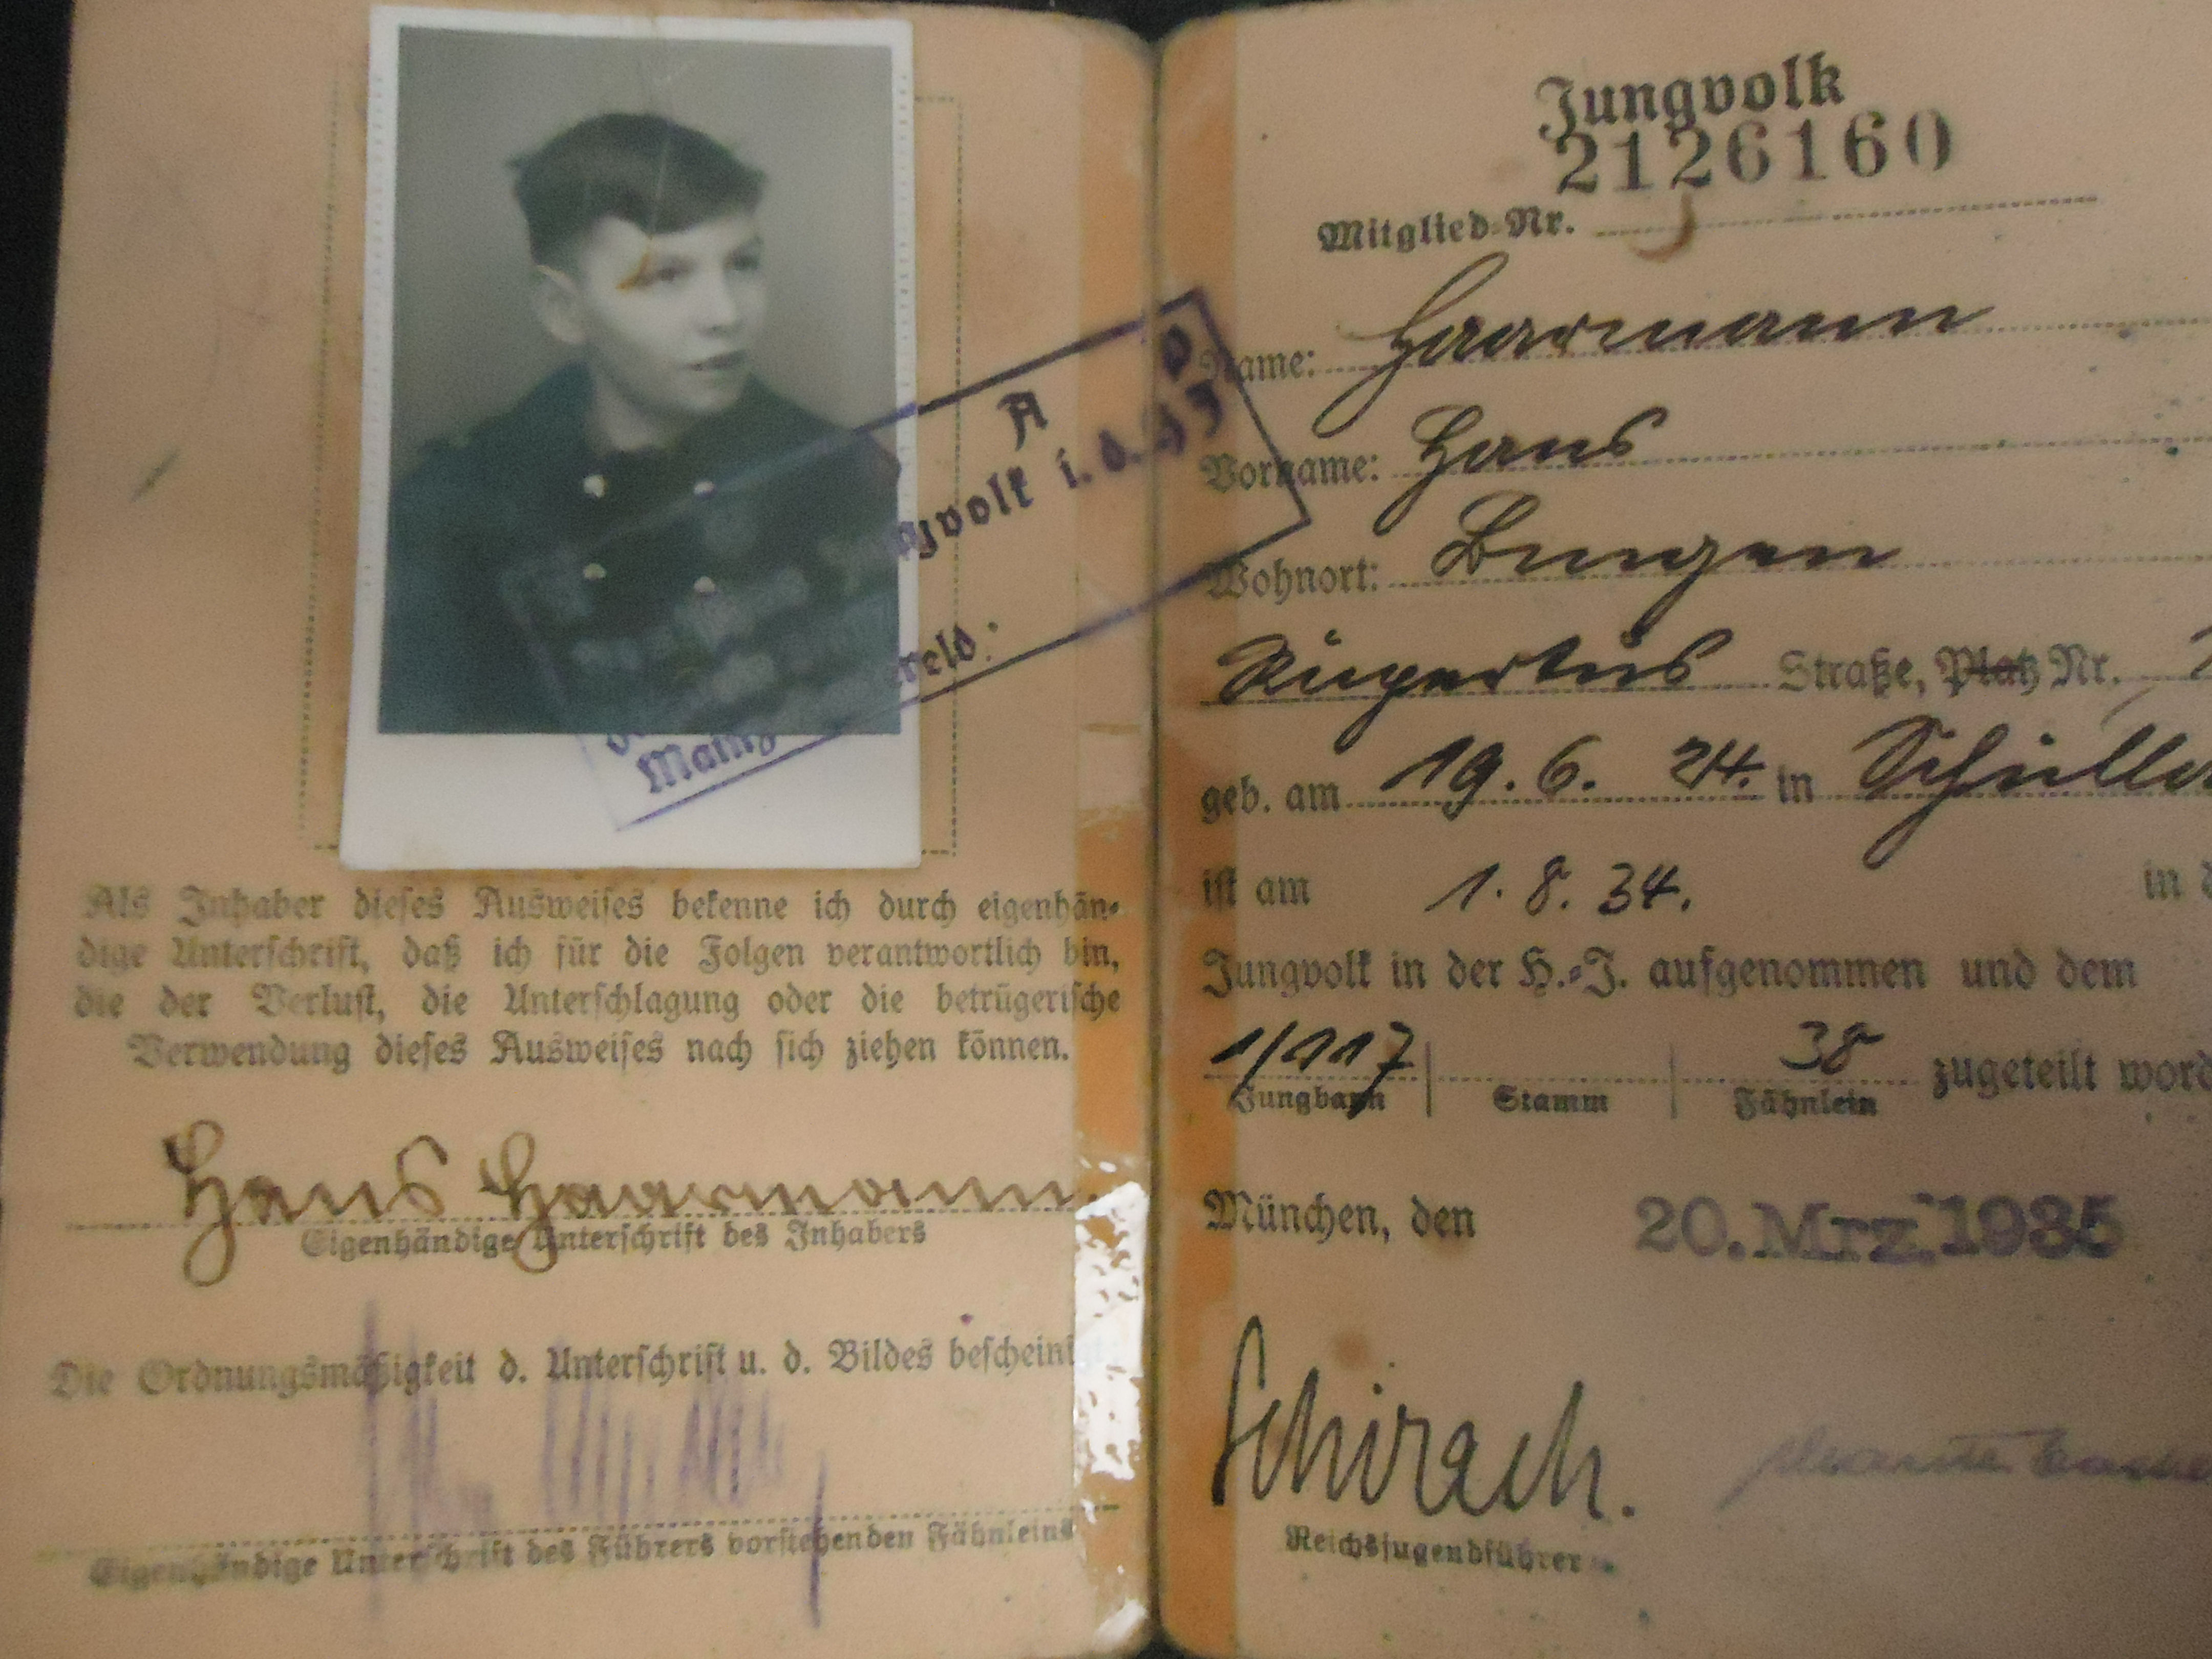 Als Inhaber dieses Ausweises bekenne ich durch eigenhän-
dige Unterschrift, daß ich für die Folgen verantwortlich bin,
die der Verlust, die Unterschlagung oder die betrügerische
Verwendung dieses Ausweises nach sich ziehen können.
Hans Haarmann.
Eigenhändige Unterschrift des Inhabers
Die Ordnungsmäßigkeit d. Unterschrift u. d. Bildes bescheini
Eigenhändige Unterschrift des Führers vorstehenden Fähnleins
gvolk i. d. HJ
Mainz
Jungvolk
2126160
Mitglied-Nr.
Name: Haarmann
Vorname: Hans
Wohnort: Bingen
Rupertus Straße, Platz Nr.
geb. am 19. 6. 24. in
ist am 1. 8. 34. in d
Jungvolk in der H.-J. aufgenommen und dem
1/117 38 zugeteilt word
Jungbann Stamm Fähnlein
München, den 20. Mrz. 1935
Schirach.
Reichsjugendführer